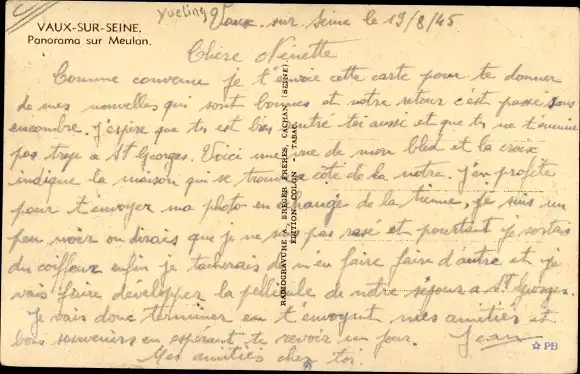 yvelines 95
Vaux-sur-Seine le 19/8/45
VAUX-SUR-SEINE.
Panorama sur Meulan.
Chère Nénette
Comme convenue je t'envoie cette carte pour te donner
de mes nouvelles qui sont bonnes et notre retour c'est passé sans
encombre. J'espère que tu est bien rentré toi aussi et que tu ne t'ennuie
pas trop a St Georges. Voici une vue de mon bled et la croix
indique la maison qui se trouve a côté de la notre. j'en profite
pour t'envoyer ma photo en échange de la tienne, je suis un
peu noir on dirais que je ne suis pas rasé et pourtant je sortais
du coiffeur enfin je tacherais de m'en faire faire d'autre et je
vais faire développer la pellicule de notre séjour a St Georges.
Je vais donc terminer en t'envoyant mes amitiés et
bons souvenirs en espérant te revoir un jour. Jean
Mes amitiés chez toi.
RADIOGRAVURE A. BREGER FRERES, CACHAN (SEINE)
EDITION COLON - TABAC
PB